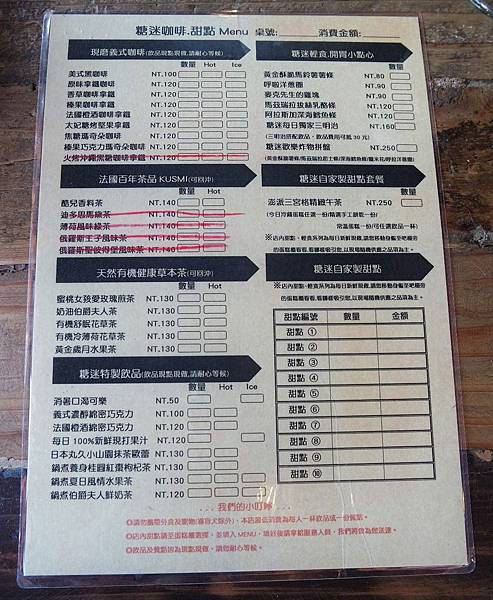 糖迷咖啡.甜點 Menu 桌號: 消費金額:
現磨義式咖啡(飲品現點現做,請耐心等候)
數量 Hot Ice
美式黑咖啡 NT.100
原味拿鐵咖啡 NT.120
香草咖啡拿鐵 NT.120
榛果咖啡拿鐵 NT.120
法國橙酒咖啡拿鐵 NT.120
太妃糖烤堅果拿鐵 NT.120
焦糖瑪奇朵咖啡 NT.120
榛果巧克力瑪奇朵咖啡 NT.120
火烤沖繩黑糖咖啡拿鐵 NT.120
法國百年茶品 KUSMI(可回沖)
數量
酷兒香料茶 NT.140
迪多思馬綠茶 NT.140
薄荷風味綠茶 NT.140
俄羅斯王子風味茶 NT.140
俄羅斯聖彼得堡風味茶 NT.140
天然有機健康草本茶(可回沖)
數量
蜜桃女孩愛玫瑰煎茶 NT.130
奶油伯爵夫人茶 NT.130
有機舒眠花草茶 NT.130
有機冷薄荷花草茶 NT.130
黃金歲月水果茶 NT.130
糖迷特製飲品(飲品現點現做,請耐心等候)
數量 Hot Ice
消暑口渴可樂 NT.50
義式濃醇綿密巧克力 NT.100
法國橙酒綿密巧克力 NT.120
每日 100%新鮮現打果汁 NT.120
日本丸久小山園抹茶歐蕾 NT.130
鍋煮養身桂圓紅棗枸杞茶 NT.130
鍋煮夏日風情水果茶 NT.130
鍋煮伯爵夫人鮮奶茶 NT.120
糖迷輕食.開胃小點心
數量
黃金酥脆馬鈴薯薯條 NT.80
呼啦洋蔥圈 NT.90
麥克先生的雞塊 NT.90
馬茲瑞拉拔絲乳酪條 NT.90
阿拉斯加深海鱈魚條 NT.90
糖迷每日獨家三明治 NT.160
(三明治搭配飲品、飲品費用可抵 30 元)
糖迷歡樂炸物拼盤 NT.250
糖迷自家製甜點套餐
數量
澎派三宮格精緻午茶 NT.250
(今日冷藏蛋糕任選一份/精選手工餅乾一份/
常溫蛋糕一份(可任選飲品一杯)
糖迷自家製甜點
甜點編號 數量 金額
甜點 ①
甜點 ②
甜點 ③
甜點 ④
甜點 ⑤
甜點 ⑥
甜點 ⑦
甜點 ⑧
甜點 ⑨
甜點 ⑩
...我們的小叮嚀...
◎請勿攜帶外食及寵物(導盲犬除外)、本店最低消費為每人一杯飲品或一份餐點。
◎店內甜點請至蛋糕櫃選擇、並填入 MENU、填好後請拿給服務人員、我們將會為您送達。
◎飲品及餐點皆為現點現做、請您耐心等候。